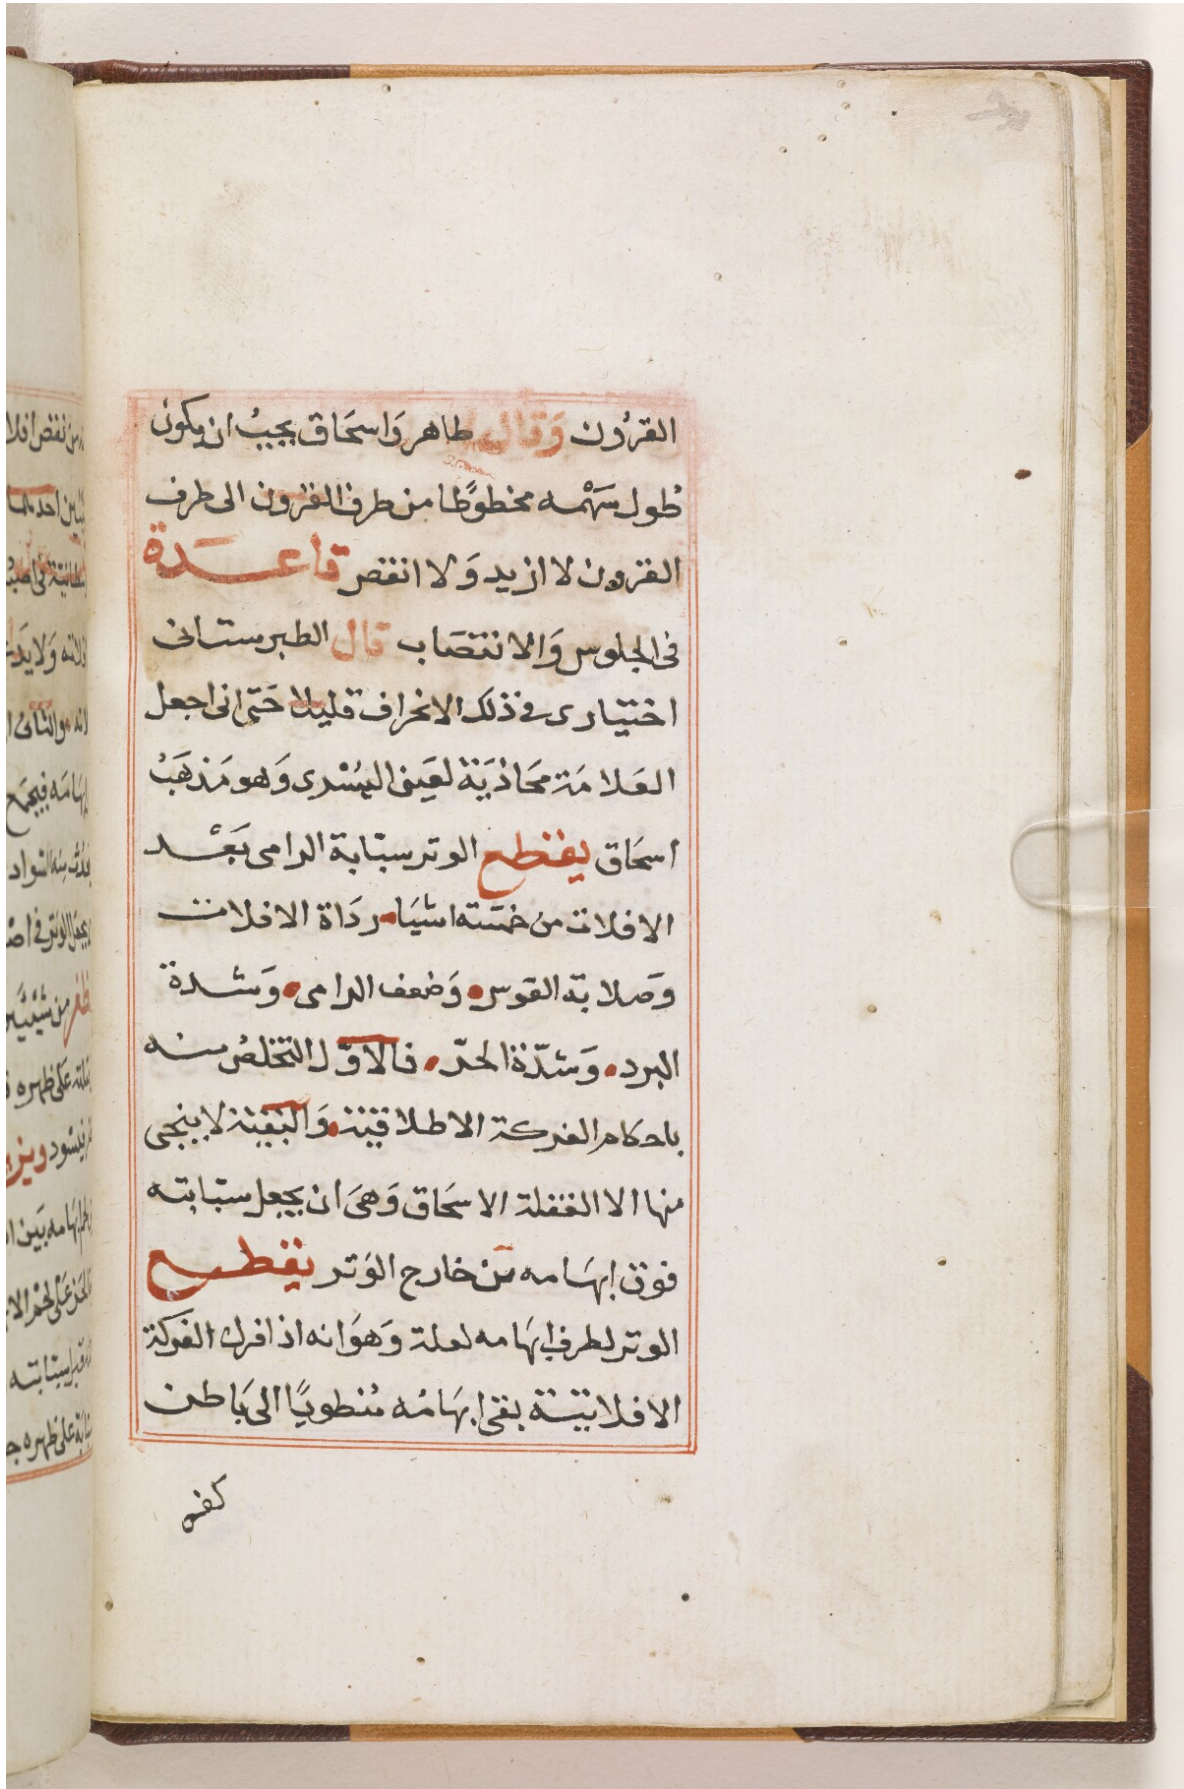 القرُون وَقال طاهر وَاسحَاق يجبُ ان يكون
طول سَهْمه مخطوطًا من طرف القرون الى طرف
القرون لا ازيد وَلا انقص قاعدة
فى الجلوس وَالانتصَاب قال الطبرستانى
اختيارى فى ذلك الانحراف قليلا حَتى انى اجعل
العَلامَة محَاذيَة لعَينى اليُسْرى وَهو مَذهَبُ
اسحَاق يقطع الوتر سبّابة الرامى بَعْد
الافلات من خمسَة اشيَا رداة الافلات
وصَلابة القوس وَضعف الرامى وَشدة
البرد وَشدّة الحرّ فالاوّل التخلصُ منه
باحكام الفركة الاطلاقية وَالبَقيّة لا ينجى
منها الا القفلة الاسحَاق وَهىَ ان يجعل سبّابته
فوق إبهَامه من خارج الوَتر يقطع
الوتر لطرف إبهَامه لعلة وَهوَ انه اذا فرك الفركة
الافلاتيّة بقى إبهَامُه مُنطويًا الى بَاطن
كفه